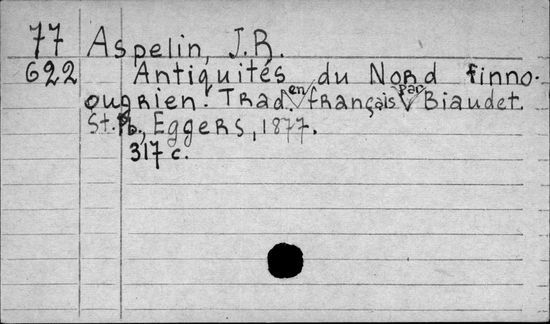 77 Aspelin, J.R.
622 Antiquités du Nord finno-
ougrien. Trad. en français par Biaudet.
St.Pb., Eggers, 1877.
317 c.